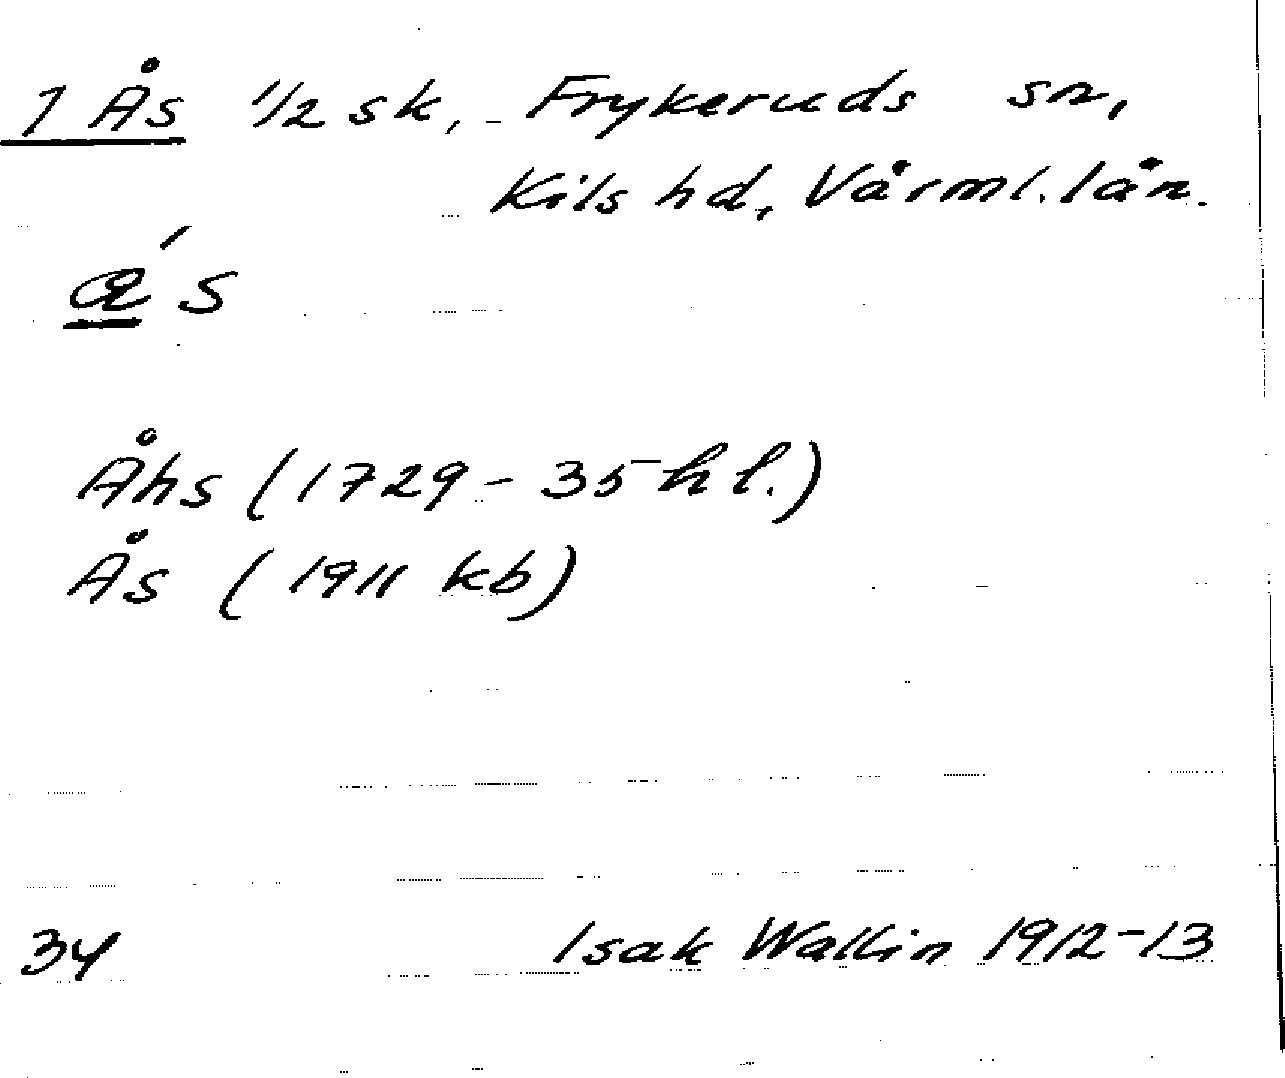 1 Ås 1/2 sk, Frykeruds sn,
Kils hd, Värml. län.
a's
Åhs (1729-35 hl.)
Ås (1911 kb)
34 Isak Wallin 1912-13